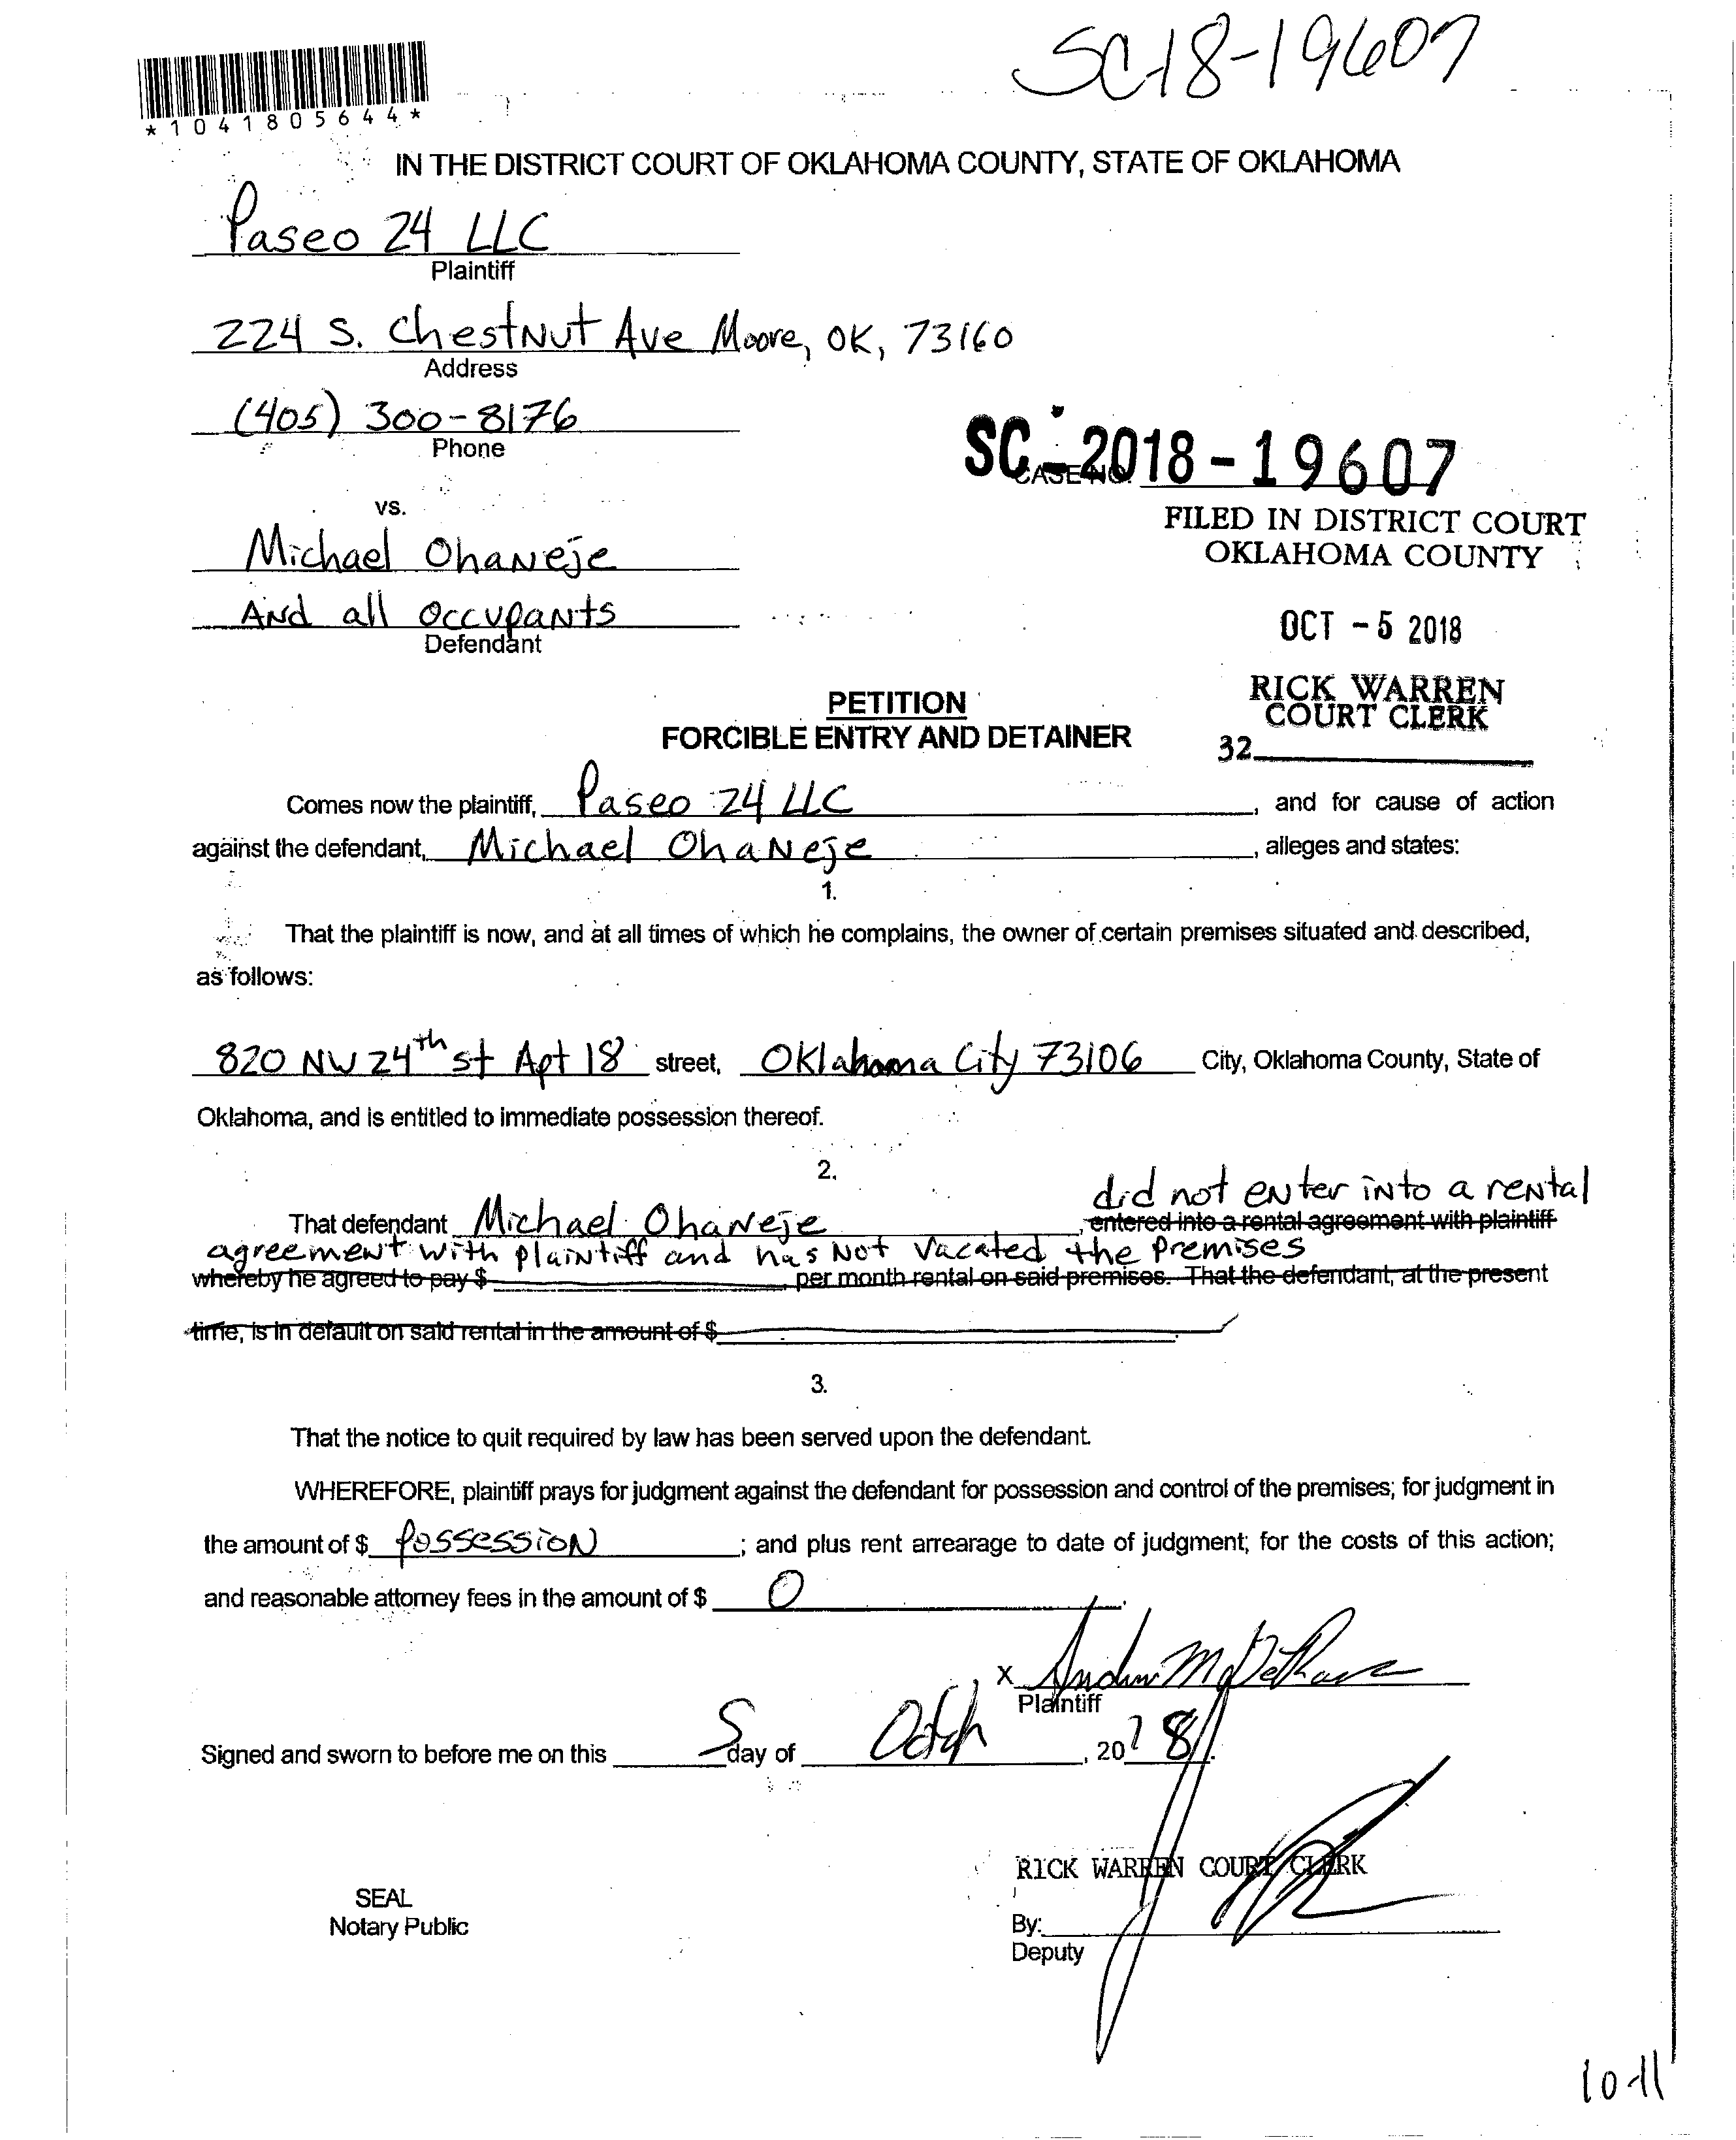 SC-18-19607
*1041805644*
IN THE DISTRICT COURT OF OKLAHOMA COUNTY, STATE OF OKLAHOMA
Paseo 24 LLC
Plaintiff
224 S. Chestnut Ave Moore, OK, 73160
Address
(405) 300-8176
Phone
SC-2018-19607
CASE NO.
vs.
FILED IN DISTRICT COURT
OKLAHOMA COUNTY
Michael Ohaneje
And all occupants
Defendant
OCT -5 2018
RICK WARREN
COURT CLERK
32
PETITION
FORCIBLE ENTRY AND DETAINER
Comes now the plaintiff, Paseo 24 LLC, and for cause of action
against the defendant, Michael Ohaneje, alleges and states:
1.
That the plaintiff is now, and at all times of which he complains, the owner of certain premises situated and described,
as follows:
820 NW 24th st Apt 18 street, Oklahoma City 73106 City, Oklahoma County, State of
Oklahoma, and is entitled to immediate possession thereof.
2.
did not enter into a rental
That defendant Michael Ohaneje, entered into a rental agreement with plaintiff
agreement with plaintiff and has not vacated the premises
whereby he agreed to pay $ per month rental on said premises. That the defendant, at the present
time, is in default on said rental in the amount of $
3.
That the notice to quit required by law has been served upon the defendant.
WHEREFORE, plaintiff prays for judgment against the defendant for possession and control of the premises; for judgment in
the amount of $ Possession; and plus rent arrearage to date of judgment; for the costs of this action;
and reasonable attorney fees in the amount of $ 0.
X
Plaintiff
Signed and sworn to before me on this 5 day of , 2018.
RICK WARREN COURT CLERK
SEAL
Notary Public
By:
Deputy
10-11